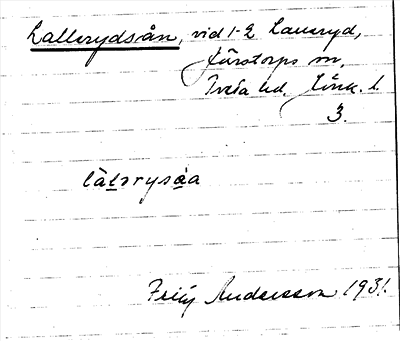 Lallerydsån, vid 1-2 Lalleryd,
Järstorps sn,
Tveta hd. Jönk. l.
3.
lälərysåa
Andersson 1931.